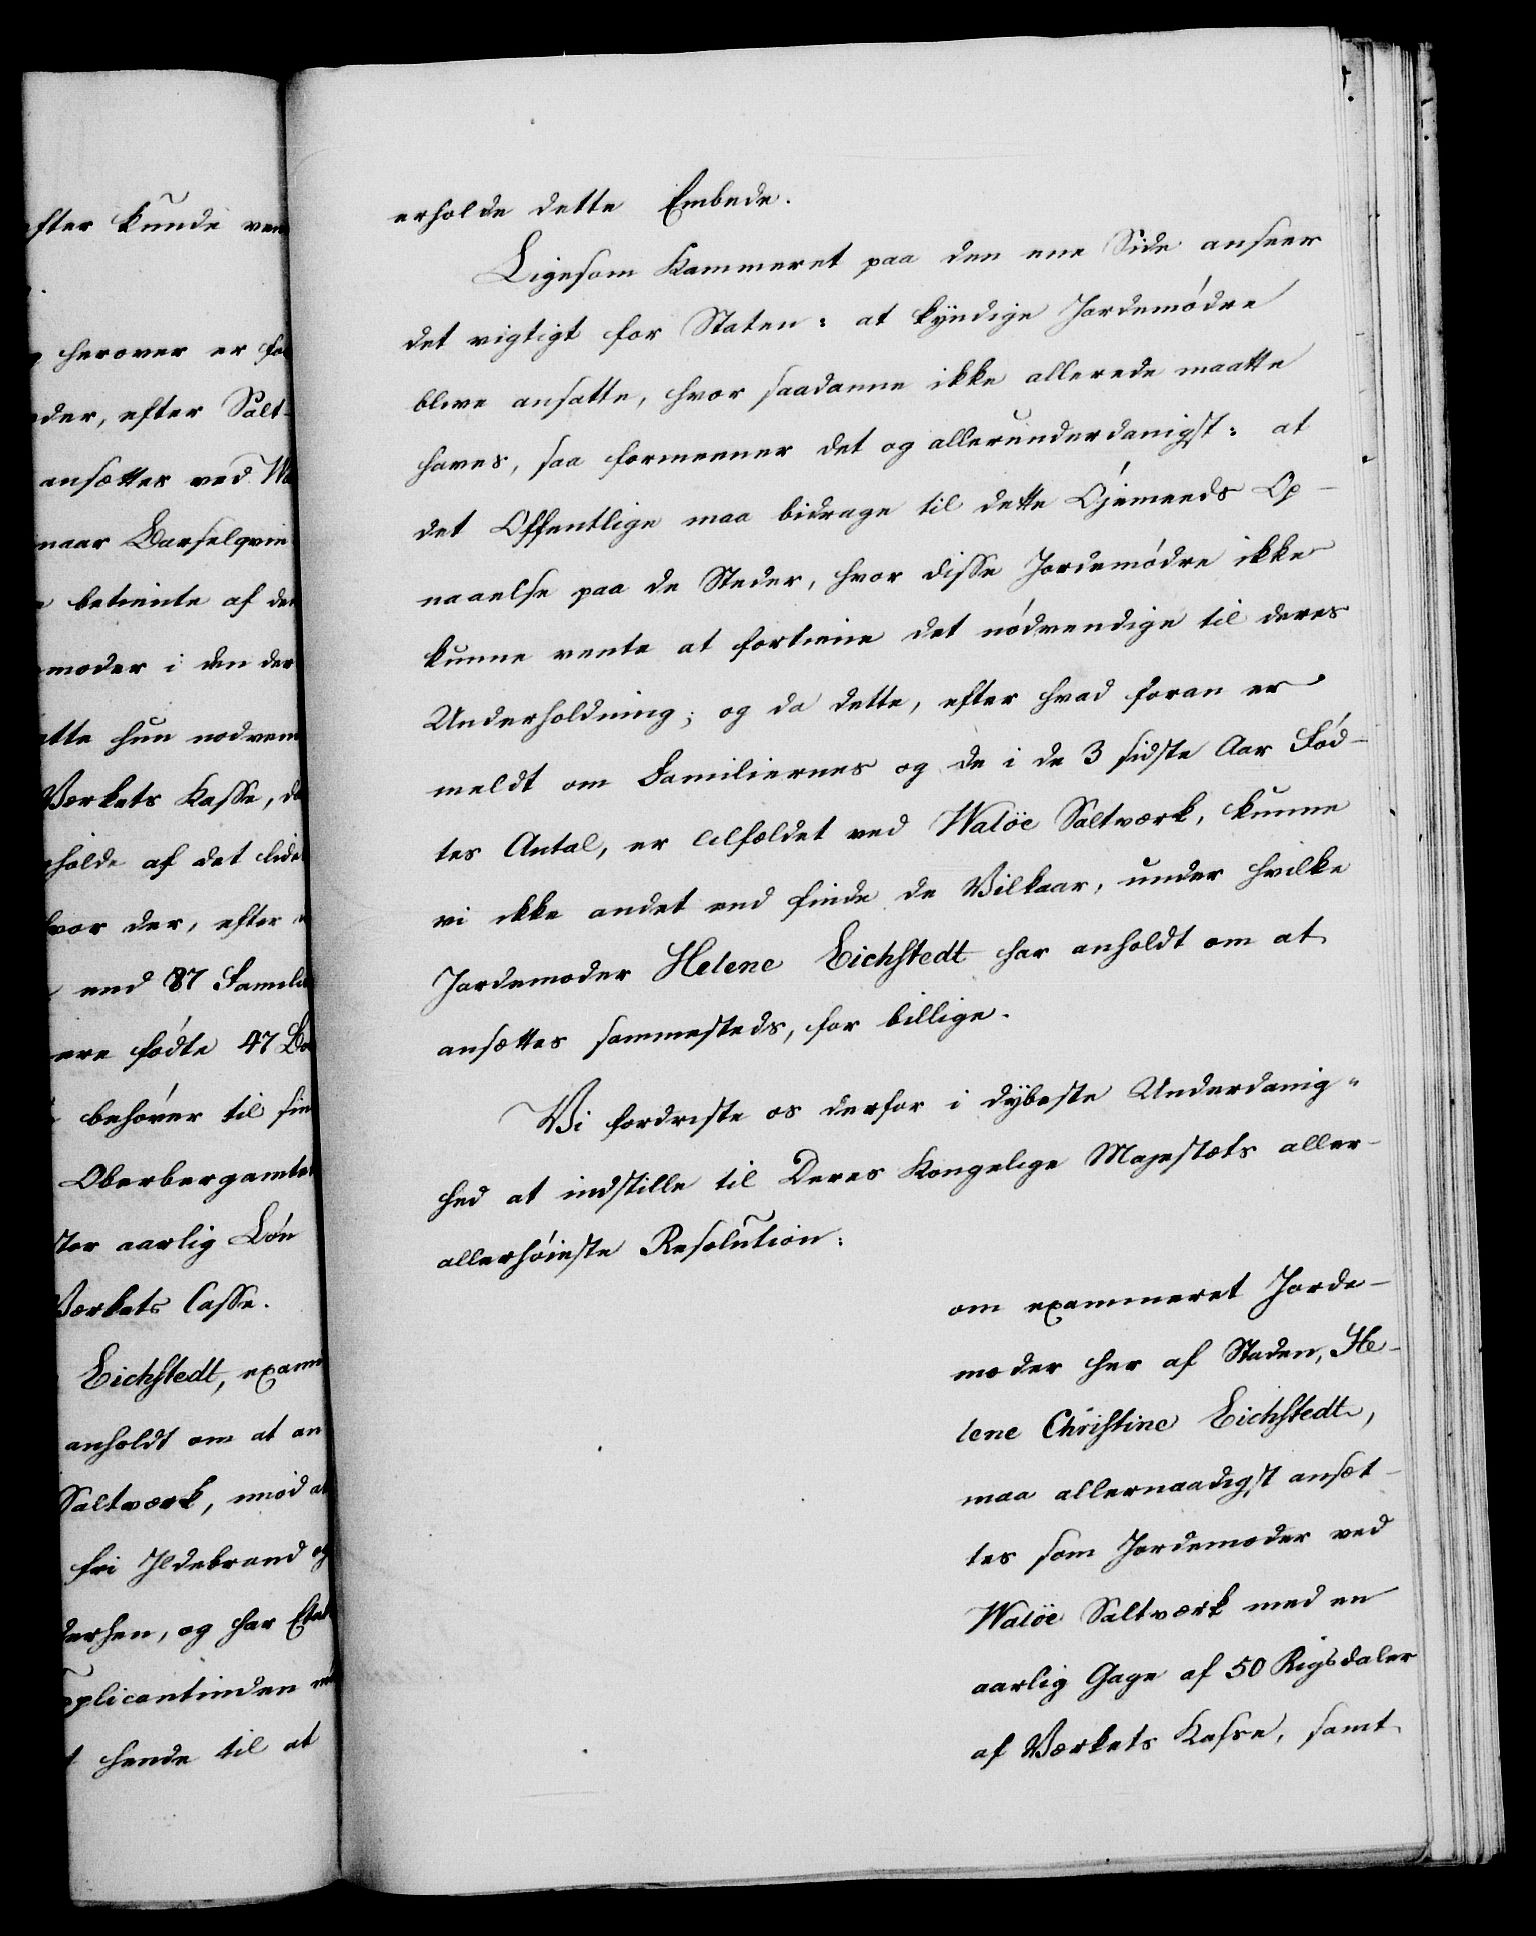 fter kunde ven
herover er for
der, efter Salt-
ansættes ved Wa
naar Barselqvin
betiente af den
moder i den der
atte hun nødven
Værkets Kasse, da
holde af det lide
hvor der, efter
end 87 Famili
ere fødte 47 Bø
behøver til sin
Oberbergamtet
ter aarlig Løn
Værkets Casse.
Eichstedt, exami
anholdt om at an
Saltværk, imod at
fri Ildebrand og
derhen, og har
pplicantinden
hende til at
erholde dette Embede.
Ligesom Kammeret paa den ene Side anseer
det vigtigt for Staten: at kyndige Jordemødre
blive ansatte, hvor saadanne ikke allerede maatte
haves, saa formeener det og allerunderdanigst: at
det Offentlige maa bidrage til dette Øjemeeds Op-
naaelse paa de Steder, hvor disse Jordemødre ikke
kunne vente at fortiene det nødvendige til deres
Underholdning; og da dette, efter hvad foran er
meldt om Familiernes og de i de 3 sidste Aar Fød-
tes Antal, er Tilfældet ved Waløe Saltværk, kunne
vi ikke andet end finde de Vilkaar, under hvilke
Jordemoder Helene Eichstedt har anholdt om at
ansættes sammesteds, for billige.
Vi fordriste os derfor i dybeste Underdanig-
hed at indstille til Deres Kongelige Majestæts aller-
allerhøieste Resolution:
om examineret Jorde-
moder her af Staden, He-
lene Christine Eichstedt,
maa allernaadigst ansæt-
tes som Jordemoder ved
Waløe Saltværk med en
aarlig Gage af 50 Rigsdaler
af Værkets Kasse, samt